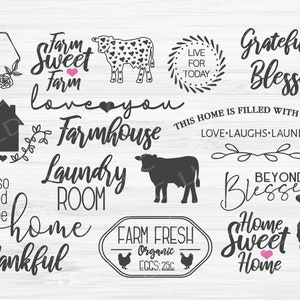 Farm
Sweet
Farm
LIVE
FOR
TODAY
Grateful
Bless
love you
THIS HOME IS FILLED WITH
LOVE•LAUGHS•LAUN
Farmhouse
Laundry
ROOM
BEYOND
Blesse
so
home
ankful
FARM FRESH
Organic
EGGS: 25¢
Home
Sweet
Home